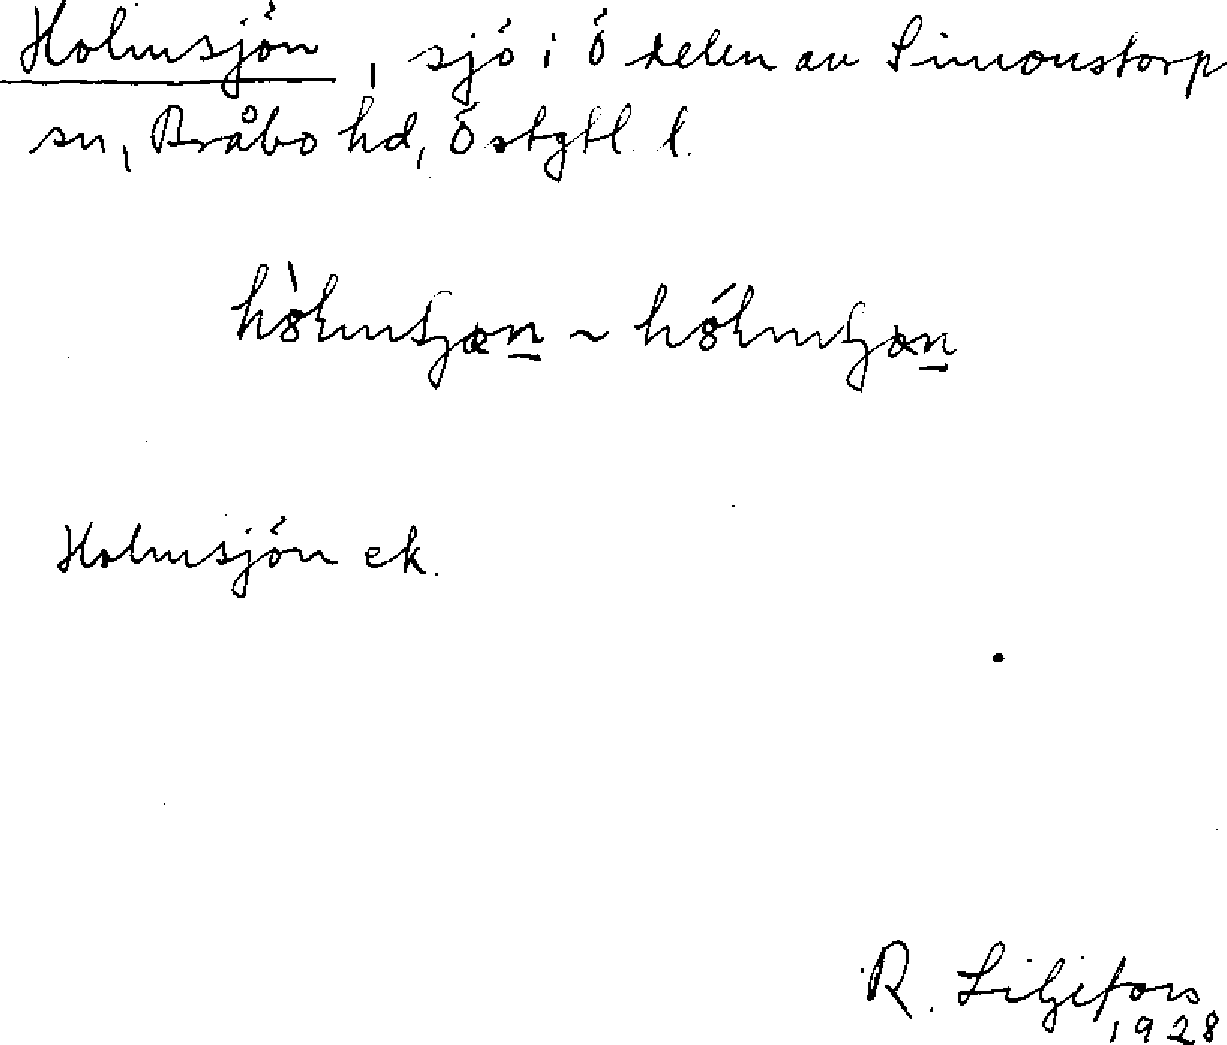 Holmsjön, sjö i ö delen av Simonstorp
sn, Bråbo hd, Östgtl l.
Holmsjön ek.
R. Liljefors
1928